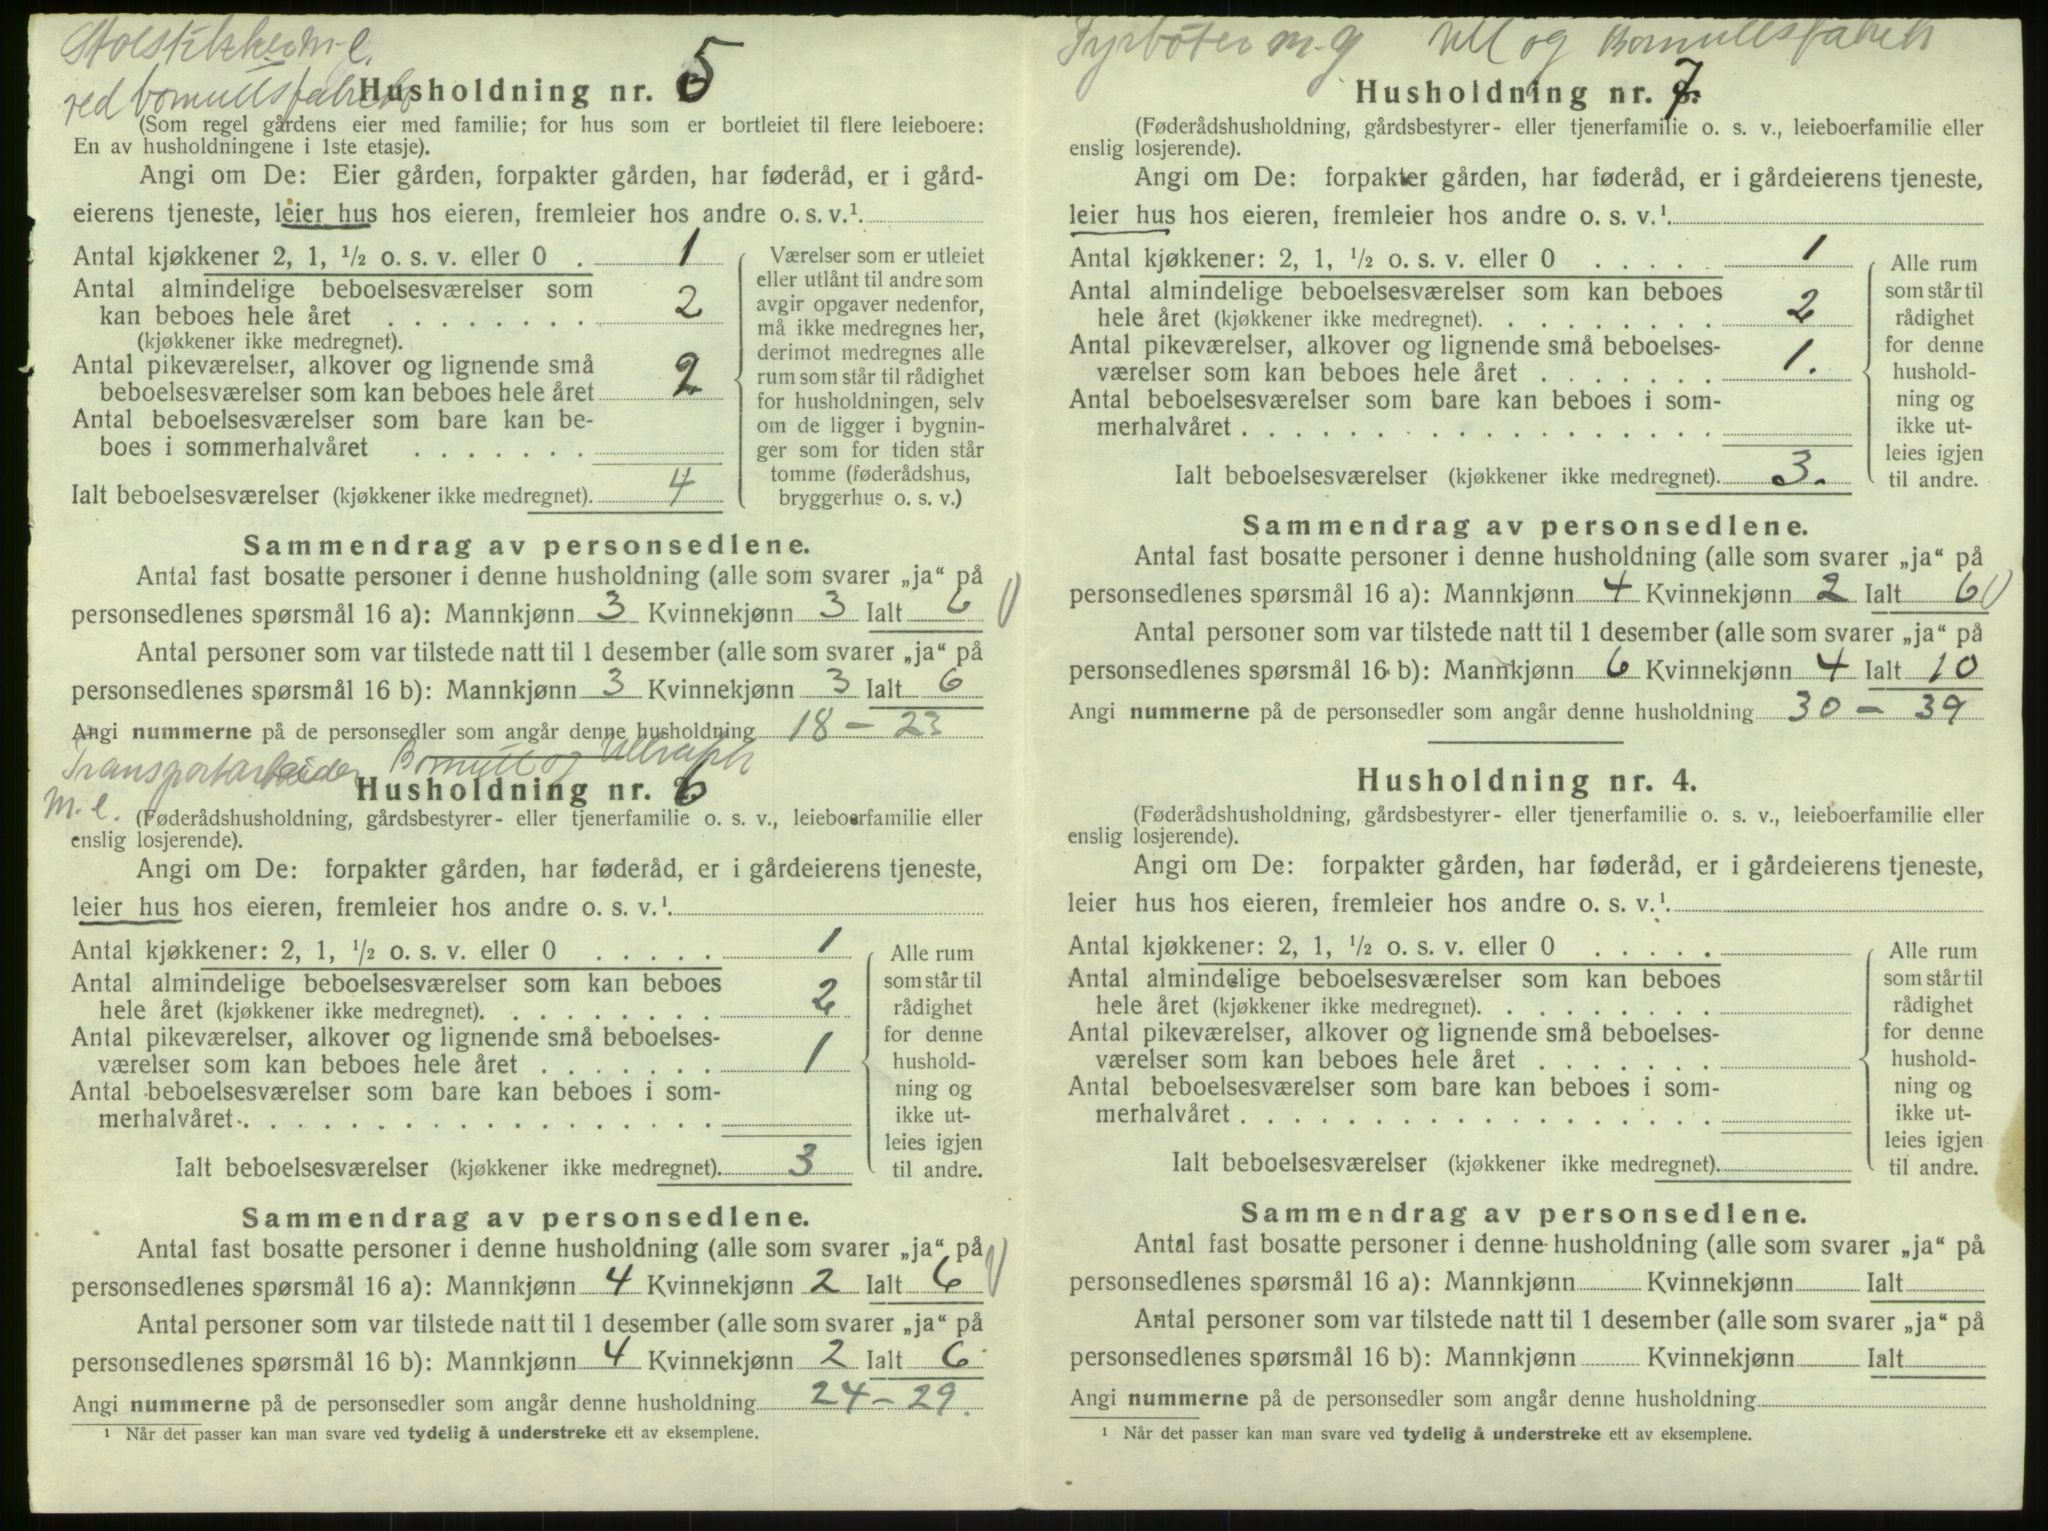 Husholdning nr. 5
ved bomullsfabrik
(Som regel gårdens eier med familie; for hus som er bortleiet til flere leieboere:
En av husholdningene i 1ste etasje).
Angi om De: Eier gården, forpakter gården, har føderåd, er i gård-
eierens tjeneste, leier hus hos eieren, fremleier hos andre o. s. v.¹.
Antal kjøkkener 2, 1, ½ o. s. v. eller 0 . 1
Antal almindelige beboelsesværelser som
kan beboes hele året . . . . . . . . 2
(kjøkkener ikke medregnet).
Antal pikeværelser, alkover og lignende små
beboelsesværelser som kan beboes hele året 2
Antal beboelsesværelser som bare kan be-
boes i sommerhalvåret . . . . . . .
Ialt beboelsesværelser (kjøkkener ikke medregnet). 4
Værelser som er utleiet
eller utlånt til andre som
avgir opgaver nedenfor,
må ikke medregnes her,
derimot medregnes alle
rum som står til rådighet
for husholdningen, selv
om de ligger i bygnin-
ger som for tiden står
tomme (føderådshus,
bryggerhus o. s. v.)
Sammendrag av personsedlene.
Antal fast bosatte personer i denne husholdning (alle som svarer „ja“ på
personsedlenes spørsmål 16 a): Mannkjønn 3 Kvinnekjønn 3 Ialt 6
Antal personer som var tilstede natt til 1 desember (alle som svarer „ja“ på
personsedlenes spørsmål 16 b): Mannkjønn 3 Kvinnekjønn 3 Ialt 6
Angi nummerne på de personsedler som angår denne husholdning 18 – 23
Transportarbeider Bomull og
Husholdning nr. 6
m.e.
(Føderådshusholdning, gårdsbestyrer- eller tjenerfamilie o. s. v., leieboerfamilie eller
enslig losjerende).
Angi om De: forpakter gården, har føderåd, er i gårdeierens tjeneste,
leier hus hos eieren, fremleier hos andre o. s. v.¹.
Antal kjøkkener: 2, 1, ½ o. s. v. eller 0 . . . . . 1
Antal almindelige beboelsesværelser som kan beboes
hele året (kjøkkener ikke medregnet). . . . . . . . . 2
Antal pikeværelser, alkover og lignende små beboelses-
værelser som kan beboes hele året . . . . . . . 1
Antal beboelsesværelser som bare kan beboes i som-
merhalvåret . . . . . . . . . . . . . . . . . .
Ialt beboelsesværelser (kjøkkener ikke medregnet). 3
Alle rum
som står til
rådighet
for denne
hushold-
ning og
ikke ut-
leies igjen
til andre.
Sammendrag av personsedlene.
Antal fast bosatte personer i denne husholdning (alle som svarer „ja“ på
personsedlenes spørsmål 16 a): Mannkjønn 4 Kvinnekjønn 2 Ialt 6
Antal personer som var tilstede natt til 1 desember (alle som svarer „ja“ på
personsedlenes spørsmål 16 b): Mannkjønn 4 Kvinnekjønn 2 Ialt 6
Angi nummerne på de personsedler som angår denne husholdning 24 – 29.
¹ Når det passer kan man svare ved tydelig å understreke ett av eksemplene.
Fyrbøter m.g Ull og Bomullsfabrik
Husholdning nr. 7
(Føderådshusholdning, gårdsbestyrer- eller tjenerfamilie o. s. v., leieboerfamilie eller
enslig losjerende).
Angi om De: forpakter gården, har føderåd, er i gårdeierens tjeneste,
leier hus hos eieren, fremleier hos andre o. s. v.¹.
Antal kjøkkener: 2, 1, ½ o. s. v. eller 0 . . . . . 1
Antal almindelige beboelsesværelser som kan beboes
hele året (kjøkkener ikke medregnet). . . . . . . . . 2
Antal pikeværelser, alkover og lignende små beboelses-
værelser som kan beboes hele året . . . . . . . 1.
Antal beboelsesværelser som bare kan beboes i som-
merhalvåret . . . . . . . . . . . . . . . . . .
Ialt beboelsesværelser (kjøkkener ikke medregnet). 3.
Alle rum
som står til
rådighet
for denne
hushold-
ning og
ikke ut-
leies igjen
til andre.
Sammendrag av personsedlene.
Antal fast bosatte personer i denne husholdning (alle som svarer „ja“ på
personsedlenes spørsmål 16 a): Mannkjønn 4 Kvinnekjønn 2 Ialt 6
Antal personer som var tilstede natt til 1 desember (alle som svarer „ja“ på
personsedlenes spørsmål 16 b): Mannkjønn 6 Kvinnekjønn 4 Ialt 10
Angi nummerne på de personsedler som angår denne husholdning 30 – 39
Husholdning nr. 4.
(Føderådshusholdning, gårdsbestyrer- eller tjenerfamilie o. s. v., leieboerfamilie eller
enslig losjerende).
Angi om De: forpakter gården, har føderåd, er i gårdeierens tjeneste,
leier hus hos eieren, fremleier hos andre o. s. v.¹.
Antal kjøkkener: 2, 1, ½ o. s. v. eller 0 . . . . .
Antal almindelige beboelsesværelser som kan beboes
hele året (kjøkkener ikke medregnet). . . . . . . . .
Antal pikeværelser, alkover og lignende små beboelses-
værelser som kan beboes hele året . . . . . . .
Antal beboelsesværelser som bare kan beboes i som-
merhalvåret . . . . . . . . . . . . . . . . . .
Ialt beboelsesværelser (kjøkkener ikke medregnet).
Alle rum
som står til
rådighet
for denne
hushold-
ning og
ikke ut-
leies igjen
til andre.
Sammendrag av personsedlene.
Antal fast bosatte personer i denne husholdning (alle som svarer „ja“ på
personsedlenes spørsmål 16 a): Mannkjønn Kvinnekjønn Ialt
Antal personer som var tilstede natt til 1 desember (alle som svarer „ja“ på
personsedlenes spørsmål 16 b): Mannkjønn Kvinnekjønn Ialt
Angi nummerne på de personsedler som angår denne husholdning
¹ Når det passer kan man svare ved tydelig å understreke ett av eksemplene.